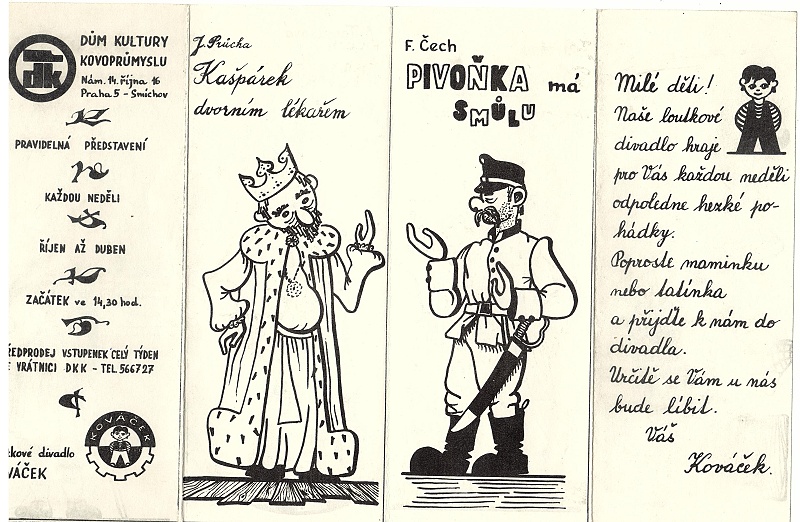 dk
DŮM KULTURY
KOVOPRŮMYSLU
Nám. 14. října 16
Praha 5 - Smíchov
PRAVIDELNÁ PŘEDSTAVENÍ
KAŽDOU NEDĚLI
ŘÍJEN AŽ DUBEN
ZAČÁTEK ve 14,30 hod.
ŘEDPRODEJ VSTUPENEK CELÝ TÝDEN
VRÁTNICI DKK - TEL. 566727
KOVÁČEK
tkové divadlo
VÁČEK
J. Průcha
Kašpárek
dvorním lékařem
F. Čech
PIVOŇKA má
SMŮLU
Milé děti!
Naše loutkové
divadlo hraje
pro Vás každou neděli
odpoledne hezké po-
hádky.
Poproste maminku
nebo tatínka
a přijďte k nám do
divadla.
Určitě se Vám u nás
bude líbit.
Váš
Kováček.